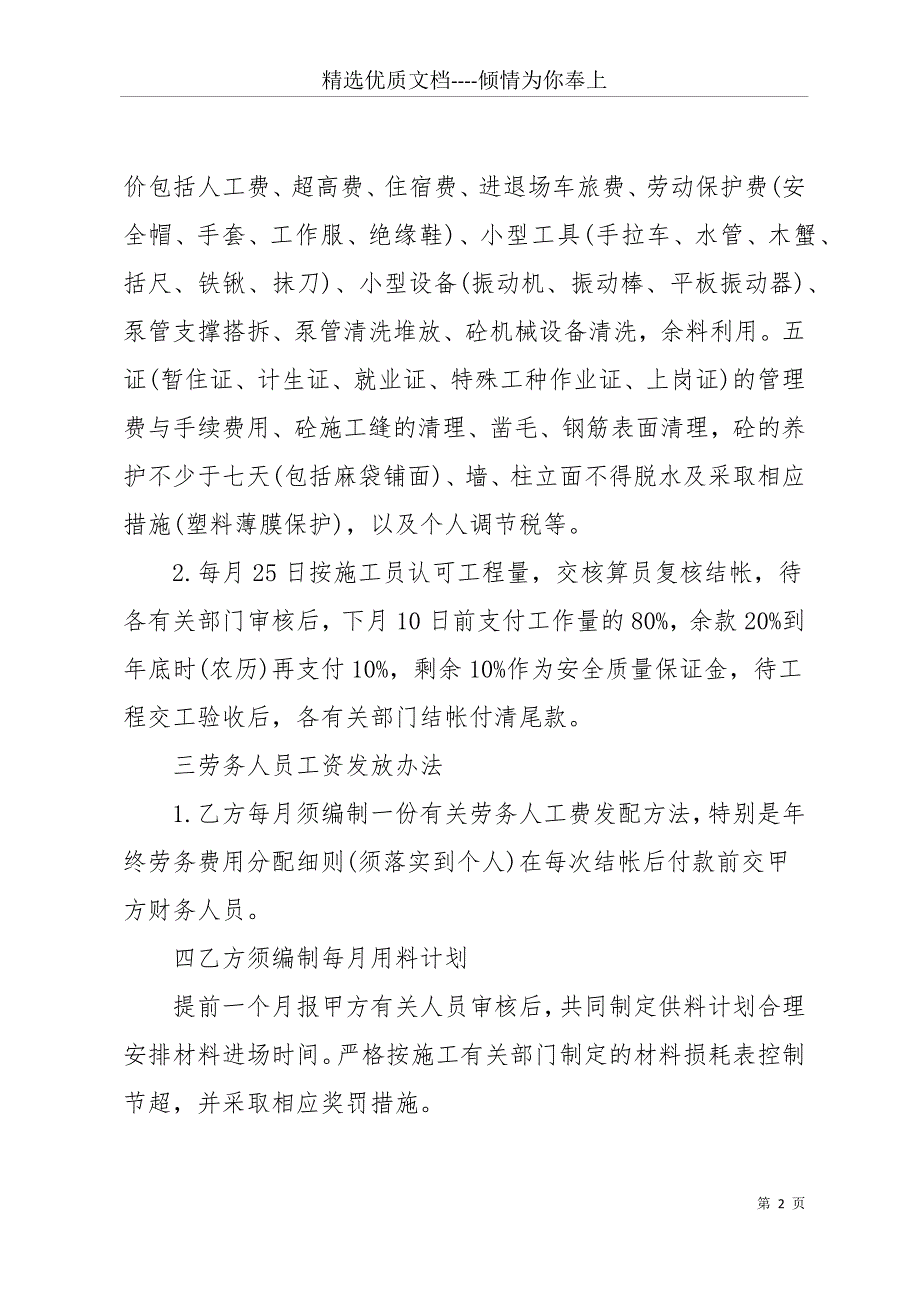 精选优质文档----倾情为你奉上
价包括人工费、超高费、住宿费、进退场车旅费、劳动保护费(安
全帽、手套、工作服、绝缘鞋)、小型工具(手拉车、水管、木蟹、
括尺、铁锹、抹刀)、小型设备(振动机、振动棒、平板振动器)、
泵管支撑搭拆、泵管清洗堆放、砼机械设备清洗，余料利用。五
证(暂住证、计生证、就业证、特殊工种作业证、上岗证)的管理
费与手续费用、砼施工缝的清理、凿毛、钢筋表面清理，砼的养
护不少于七天(包括麻袋铺面)、墙、柱立面不得脱水及采取相应
措施(塑料薄膜保护)，以及个人调节税等。
2.每月25日按施工员认可工程量，交核算员复核结帐，待
各有关部门审核后，下月10日前支付工作量的80%，余款20%到
年底时(农历)再支付10%，剩余10%作为安全质量保证金，待工
程交工验收后，各有关部门结帐付清尾款。
三劳务人员工资发放办法
1.乙方每月须编制一份有关劳务人工费发配方法，特别是年
终劳务费用分配细则(须落实到个人)在每次结帐后付款前交甲
方财务人员。
四乙方须编制每月用料计划
提前一个月报甲方有关人员审核后，共同制定供料计划合理
安排材料进场时间。严格按施工有关部门制定的材料损耗表控制
节超，并采取相应奖罚措施。
第 2 页